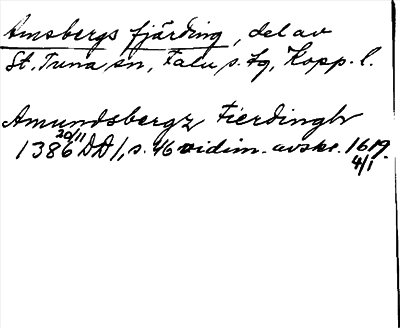 Amsbergs fjärding, del av
St. Tuna sn, Falu s. tg, Kopp. l.
Amundsbergz Fierdingh
1386 20/11 DD 1, s. 46 vidim. avskr. 1619 4/1.